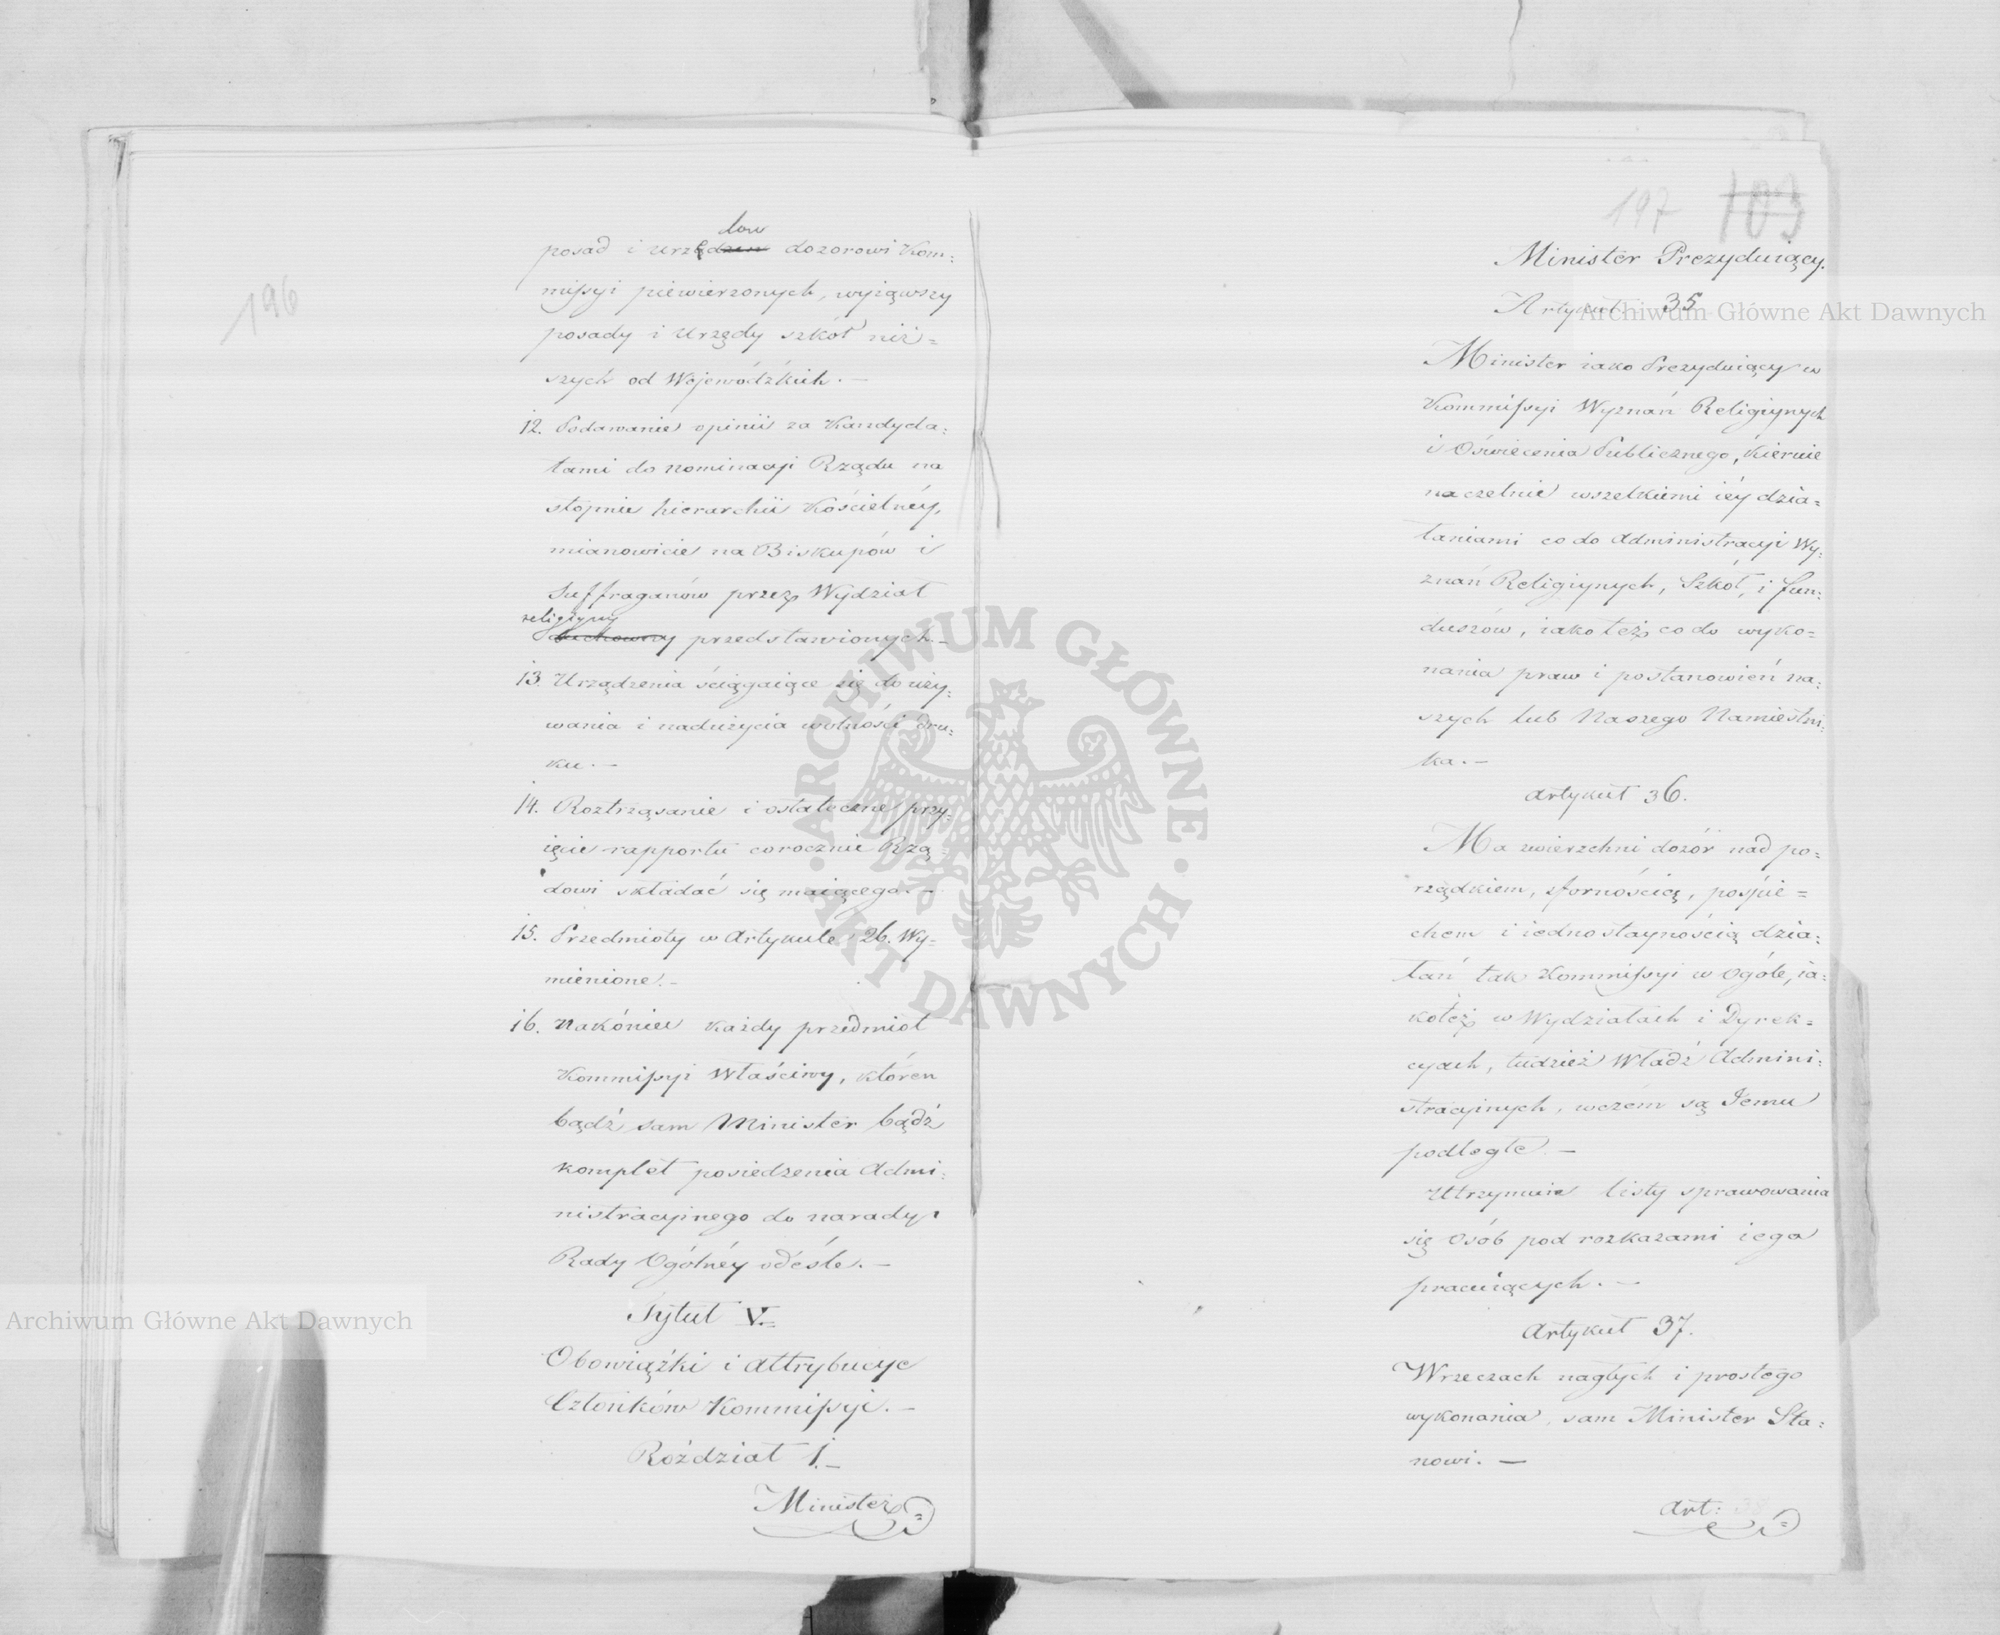 196
dow
posad i urzędzen dozorowi Kom:
missyi powierzonych, wyiąwszy
posady i Urzędy szkół niż=
szych od Wojewódzkich. —
12. Podawanie opinii za Kandyda:
tami do nominacyi Rządu na
stopnie hierarchii Kościelnéy,
mianowicie na Biskupów i
Suffraganów przez Wydział
religiyny
Duchowny przedstawionych. —
13. Urządzenia ściągaiące się do uży:
wania i nadużycia wolności dru:
ku. —
14. Roztrząsanie i ostateczne przy:
ięcie rapportu corocznie Rzą:
dowi składać się maiącego. —
15. Przedmioty w Artykule 26. Wy=
mienione. —
16. Nakóniec każdy przedmiot
Kommissyi Właściwy, któren
bądź sam Minister bądź
komplet posiedzenia Admi:
nistracyinego do narady
Rady Ogólnéy odeśle. —
Tytuł V.
Obowiązki i attrybucye
Członków Kommissyi. —
Rozdział I. —
Minister
197 103
Minister Prezyduiący.
Artykuł 35
Minister iako Prezyduiący w
Kommissyi Wyznań Religiynych
i Oświecenia Publicznego, kieruie
naczelnie wszelkiemi iéy dzia=
łaniami co do Administracyi Wy:
znań Religiynych, Szkół, i fun:
duszów, iako też co do wyko=
nania praw i postanowień na:
szych lub Naszego Namiestni:
ka. —
Artykuł 36.
Ma zwierzchni dozór nad po=
rządkiem, sfornością, pośpie=
chem i iednostaynością dzia:
łań tak Kommissyi w Ogóle, ia:
koteż w Wydziałach i Dyrek=
cyach, tudzież Władz Admini:
stracyinych, wczém są Jemu
podległe. —
Utrzymuie listy sprawowania
się Osób pod rozkazami iego
pracuiących. —
Artykuł 37.
W rzeczach nagłych i prostego
wykonania, sam Minister Sta:
nowi. —
Art: 38
Archiwum Główne Akt Dawnych
Archiwum Główne Akt Dawnych
ARCHIWUM GŁÓWNE · AKT DAWNYCH ·